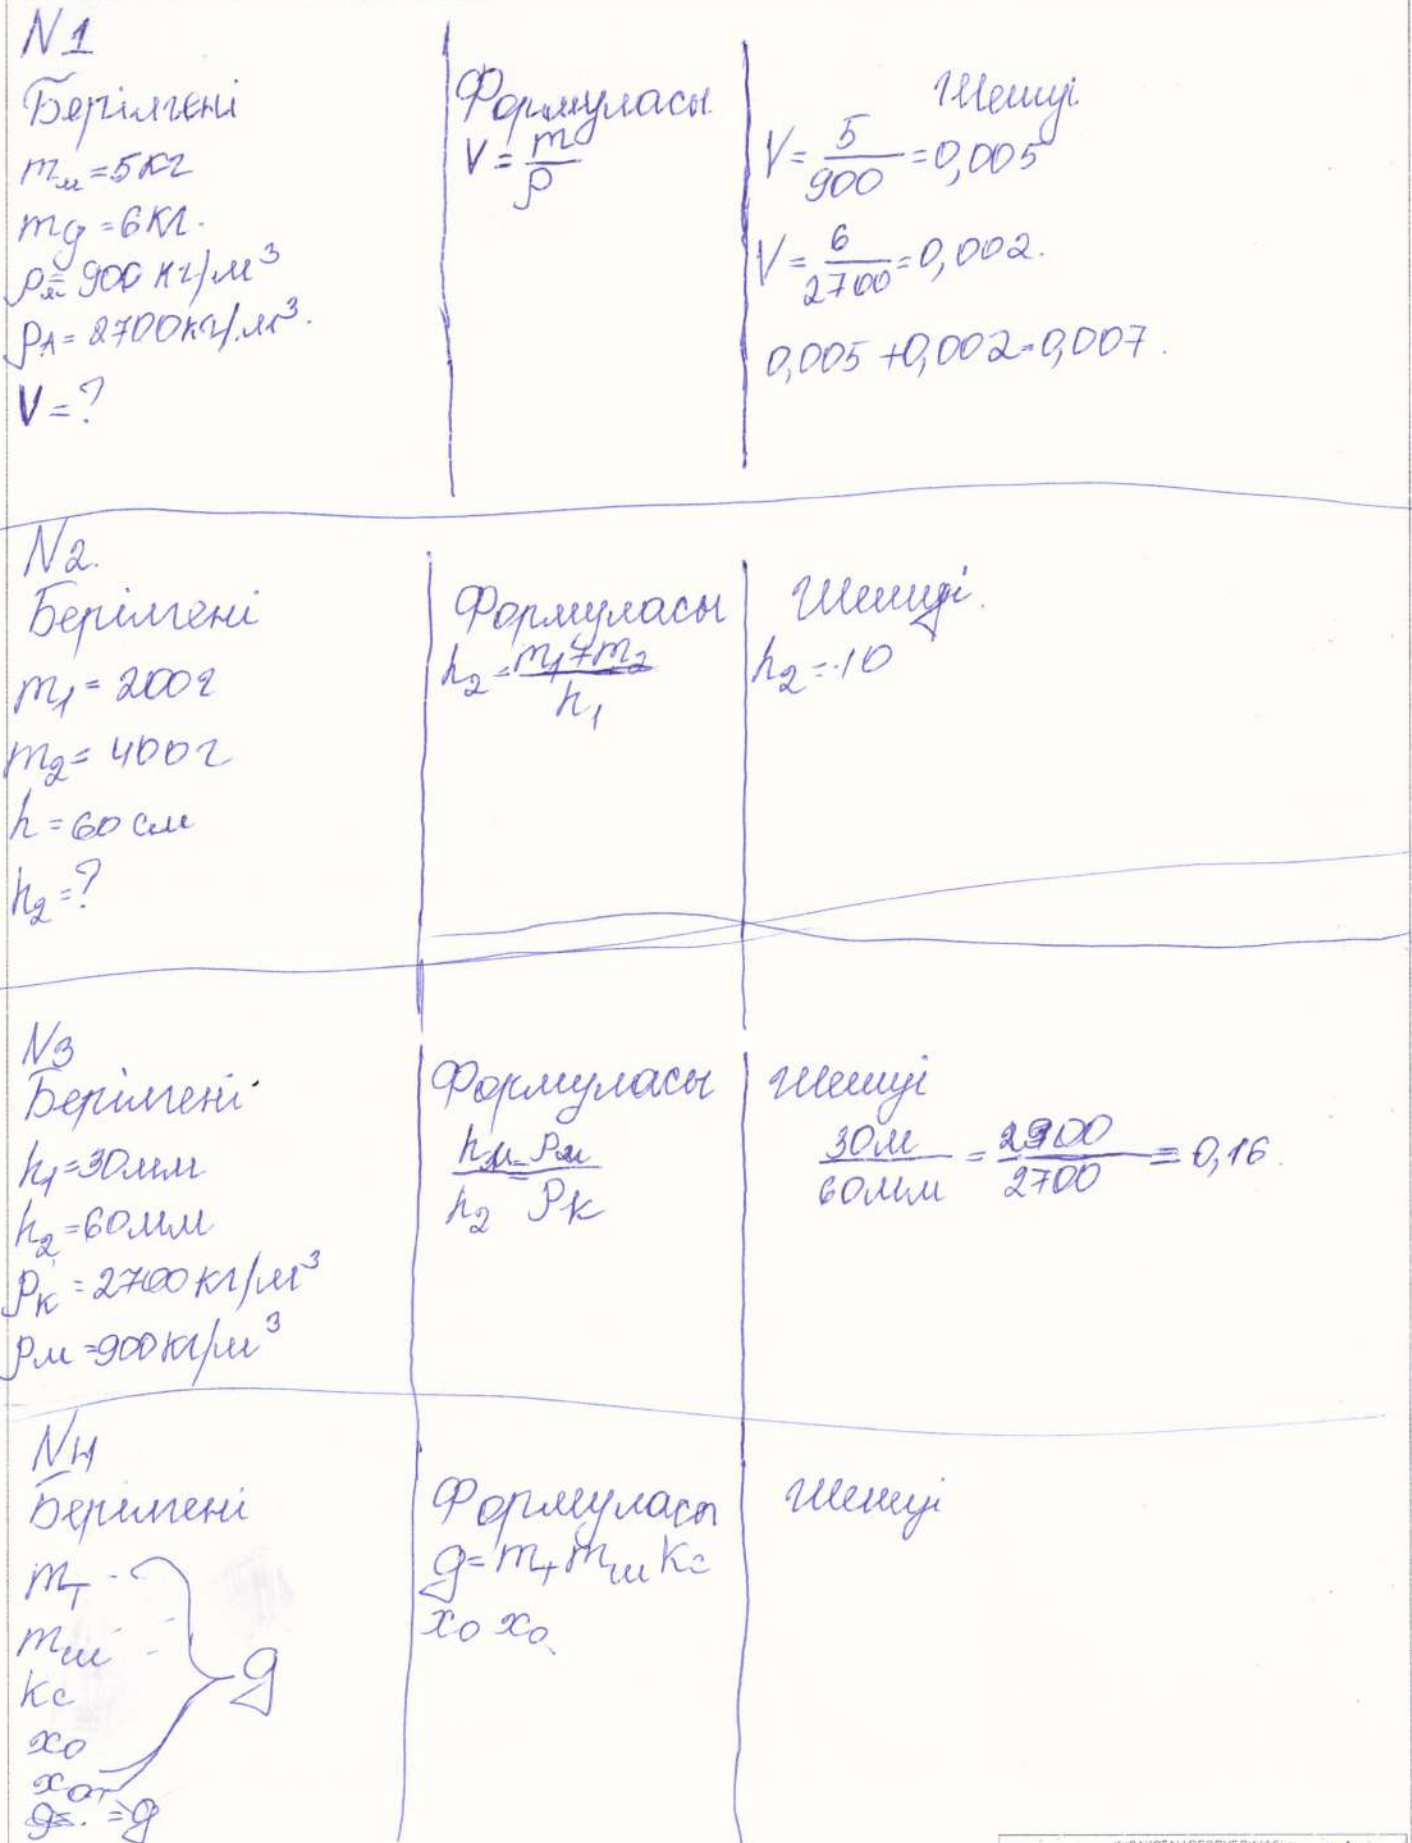 N1
Берілгені
mм = 5кг
mд = 6кг.
ρм = 900 кг/м³
ρA = 2700кг/м³.
V = ?
Формуласы
V = m/ρ
Шешуі.
V = 5/900 = 0,005
V = 6/2700 = 0,002.
0,005 + 0,002 = 0,007.
N2.
Берілгені
m1 = 200г
m2 = 400г
h = 60 см
h2 = ?
Формуласы
h2 = m1+m2/h1
Шешуі.
h2 = 10
N3
Берілгені
h1 = 30мм
h2 = 60мм
ρк = 2700 кг/м³
ρм = 900кг/м³
Формуласы
hм = ρм
h2 ρк
Шешуі
30м/60мм = 2700 = 0,16.
N4
Берілгені
mт
mш
g
кс
x0
x0т
= g
Формуласы
g = mт mш кс
x0 x0.
Шешуі